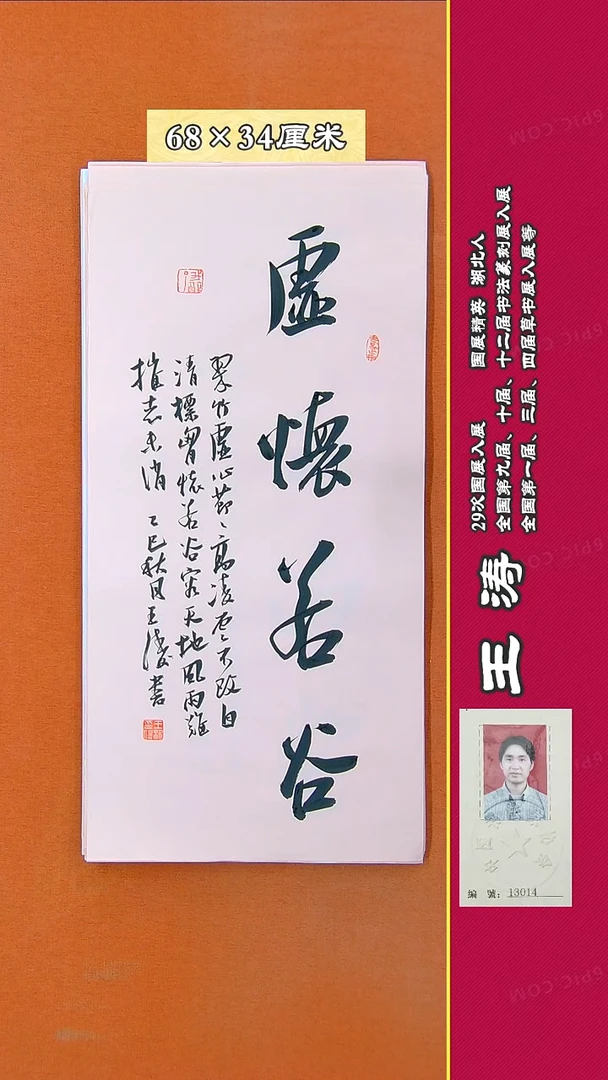 68×34厘米
虛懷若谷
翠竹虛心節〻高凌雲不改自
清標胸懷若谷容天地風雨難
摧志未消 乙巳秋月王濤書
29次国展入展 国展精英 湖北人
全国第九届、十届、十二届书法篆刻展入展
全国第一届、三届、四届草书展入展等
王涛
编 號: 13014